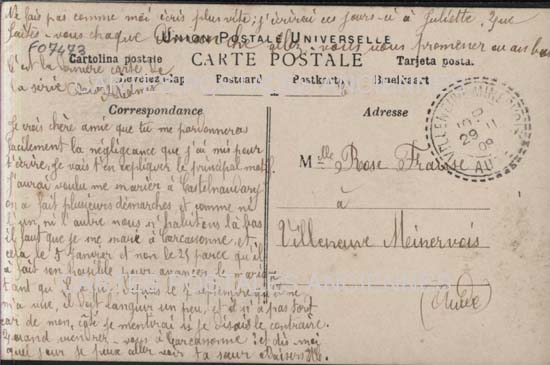 Ne fais pas comme moi écris plus vite; j'écrirai ces jours-ci à Juliette, Que
faites-vous chaque dimanche allez-vous vous promener ou au bal
F07473
UNION POSTALE UNIVERSELLE
CARTE POSTALE
C'est la dernière carte de
la série
Cartolina postale
Tarjeta posta.
Postcard
Postkarte
Briefkaart
Correspondance
Adresse
Je crois chère amie que tu me pardonnera
facilement la négligeance que j'ai mis pour
t'écrire, Je vais t'en expliquer le principal motif
J'aurai voulu me marier à Castelnaudary
on a fait plusieurs démarches et comme ni
l'un, ni l'autre nous n'habitons là bas
il faut que je me marie à Carcassonne, et
cela le 8 Janvier et non le 25 parce qu'il
a fait son possible pour avancer le mariage
tant qu'il
m'a vue, il doit languir un peu, et il n'a pas tort
car de mon côté je mentirai si je disais le contraire.
Quand viendrez-vous à Carcassonne? et dis-moi
quel jour je peux aller voir ta sœur
Mlle Rose
à
Villeneuve Meinervois
(Aude)
VILLENEUVE-MINERVOIS
29 11
09
AUDE